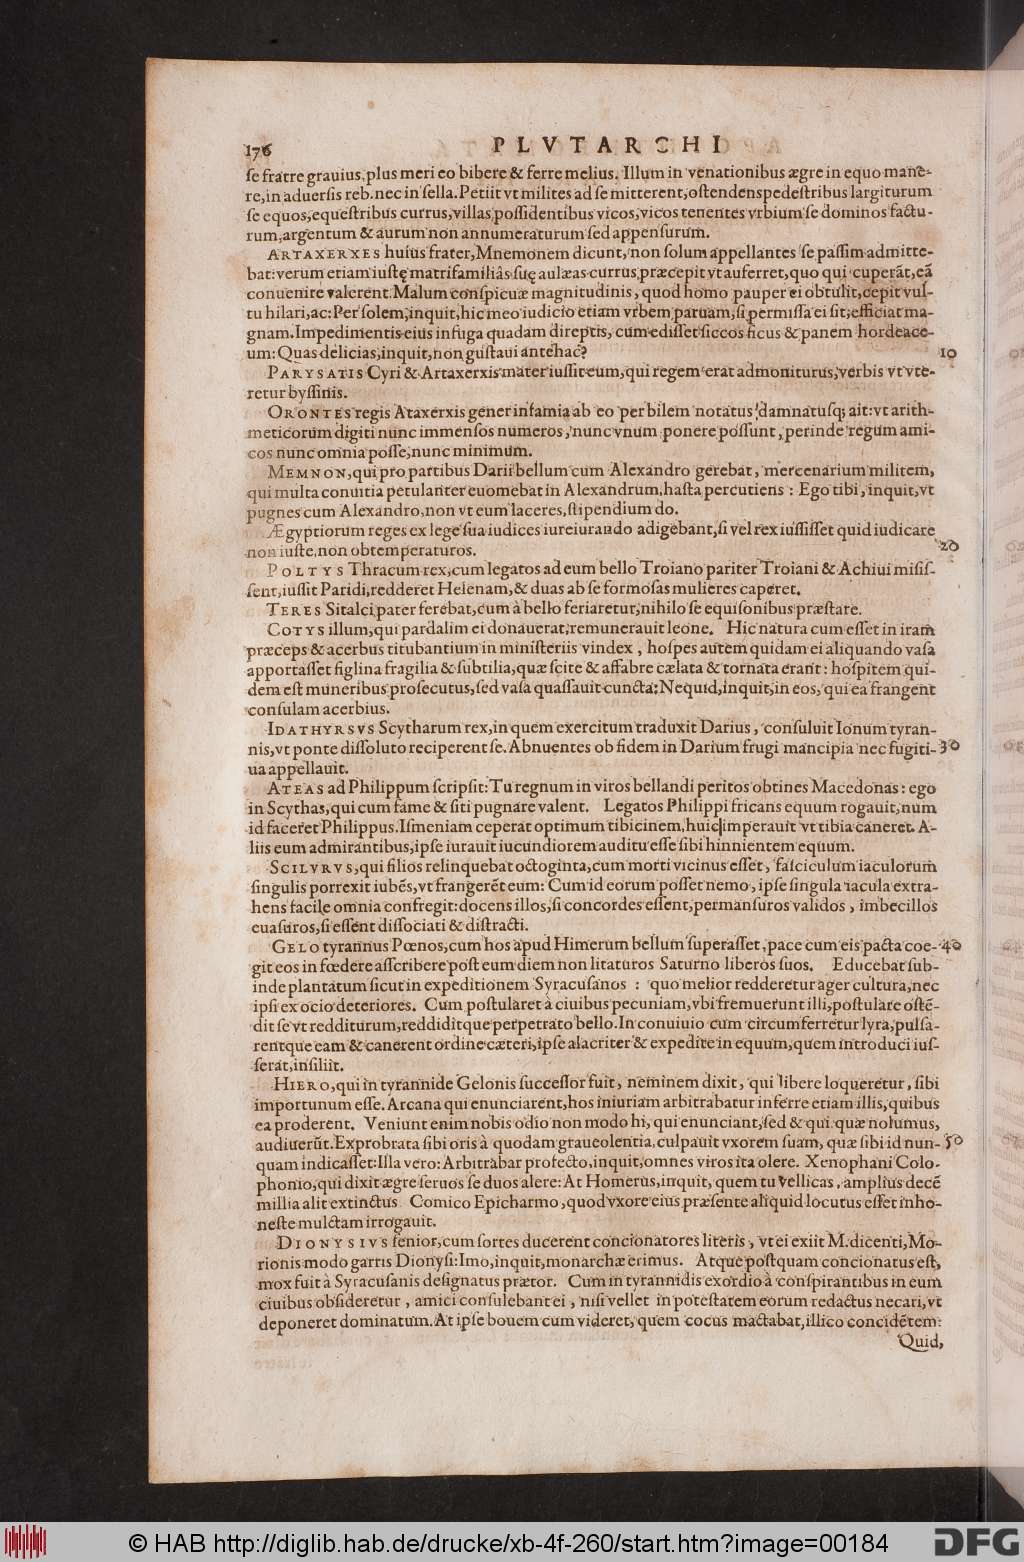 176 PLVTARCHI
se fratre grauius, plus meri eo bibere & ferre melius. Illum in venationibus ægre in equo mane-
re, in aduersis reb. nec in sella. Petiit vt milites ad se mitterent, ostendens pedestribus largiturum
se equos, equestribus currus, villas possidentibus vicos, vicos tenentes vrbium se dominos factu-
rum, argentum & aurum non annumeraturum sed appensurum.
ARTAXERXES huius frater, Mnemonem dicunt, non solum appellantes se passim admitte-
bat: verum etiam iustę matrifamiliâs suę aulæas currus, præcepit vt auferret, quo qui cuperãt, eã
conuenire valerent. Malum conspicuæ magnitudinis, quod homo pauper ei obtulit, cepit vul-
tu hilari, ac: Per solem, inquit, hic meo iudicio etiam vrbem paruam, si permissa ei sit, efficiat ma-
gnam. Impedimentis eius in fuga quadam direptis, cum edisset siccos ficus & panem hordeace-
um: Quas delicias, inquit, non gustaui antehac? 10
PARYSATIS Cyri & Artaxerxis mater iussit eum, qui regem erat admoniturus, verbis vt vte-
retur byssinis.
ORONTES regis Ataxerxis gener infamia ab eo per bilem notatus damnatusq; ait: vt arith-
meticorum digiti nunc immensos numeros, nunc vnum ponere possunt, perinde regum ami-
cos nunc omnia posse, nunc minimum.
MEMNON, qui pro partibus Darii bellum cum Alexandro gerebat, mercenarium militem,
qui multa conuitia petulanter euomebat in Alexandrum, hasta percutiens: Ego tibi, inquit, vt
pugnes cum Alexandro, non vt eum laceres, stipendium do.
Ægyptiorum reges ex lege sua iudices iureiurando adigebant, si vel rex iussisset quid iudicare
non iuste, non obtemperaturos. 20
POLTYS Thracum rex, cum legatos ad eum bello Troiano pariter Troiani & Achiui misis-
sent, iussit Paridi, redderet Helenam, & duas ab se formosas mulieres caperet.
TERES Sitalci pater ferebat, cum à bello feriaretur, nihilo se equisonibus præstare.
COTYS illum, qui pardalim ei donauerat, remunerauit leone. Hic natura cum esset in iram
præceps & acerbus titubantium in ministeriis vindex, hospes autem quidam ei aliquando vasa
apportasset figlina fragilia & subtilia, quæ scite & affabre cælata & tornata erant: hospitem qui-
dem est muneribus prosecutus, sed vasa quassauit cuncta: Ne quid, inquit, in eos, qui ea frangent
consulam acerbius.
IDATHYRSVS Scytharum rex, in quem exercitum traduxit Darius, consuluit Ionum tyran-
nis, vt ponte dissoluto reciperent se. Abnuentes ob fidem in Darium frugi mancipia nec fugiti- 30
ua appellauit.
ATEAS ad Philippum scripsit: Tu regnum in viros bellandi peritos obtines Macedonas: ego
in Scythas, qui cum fame & siti pugnare valent. Legatos Philippi fricans equum rogauit, num
id faceret Philippus. Ismeniam ceperat optimum tibicinem, huic imperauit vt tibia caneret. A-
liis eum admirantibus, ipse iurauit iucundiorem auditu esse sibi hinnientem equum.
SCILVRVS, qui filios relinquebat octoginta, cum morti vicinus esset, fasciculum iaculorum
singulis porrexit iubẽs, vt frangerẽt eum: Cum id eorum posset nemo, ipse singula iacula extra-
hens facile omnia confregit: docens illos, si concordes essent, permansuros validos, imbecillos
euasuros, si essent dissociati & distracti.
GELO tyrannus Pœnos, cum hos apud Himerum bellum superasset, pace cum eis pacta coe- 40
git eos in fœdere asscribere post eum diem non litaturos Saturno liberos suos. Educebat sub-
inde plantatum sicut in expeditionem Syracusanos: quo melior redderetur ager cultura, nec
ipsi ex ocio deteriores. Cum postularet à ciuibus pecuniam, vbi fremuerunt illi, postulare ostẽ-
dit se vt redditurum, reddiditque perpetrato bello. In conuiuio cum circumferretur lyra, pulsa-
rentque eam & canerent ordine cæteri, ipse alacriter & expedite in equum, quem introduci ius-
serat, insiliit.
HIERO, qui in tyrannide Gelonis successor fuit, neminem dixit, qui libere loqueretur, sibi
importunum esse. Arcana qui enunciarent, hos iniuriam arbitrabatur inferre etiam illis, quibus
ea proderent. Veniunt enim nobis odio non modo hi, qui enunciant, sed & qui quæ nolumus,
audiuerũt. Exprobrata sibi oris à quodam graueolentia, culpauit vxorem suam, quæ sibi id nun- 50
quam indicasset: Illa vero: Arbitrabar profecto, inquit, omnes viros ita olere. Xenophani Colo-
phonio, qui dixit ægre seruos se duos alere: At Homerus, inquit, quem tu vellicas, amplius decẽ
millia alit extinctus Comico Epicharmo, quod vxore eius præsente aliquid locutus esset inho-
neste mulctam irrogauit.
DIONYSIVS senior, cum sortes ducerent concionatores literis, vt ei exiit M. dicenti, Mo-
rionis modo garris Dionysi: Imo, inquit, monarchæ erimus. Atque postquam concionatus est,
mox fuit à Syracusanis designatus prætor. Cum in tyrannidis exordio à conspirantibus in eum
ciuibus obsideretur, amici consulebant ei, nisi vellet in potestatem eorum redactus necari, vt
deponeret dominatum. At ipse bouem cum videret, quem cocus mactabat, illico concidẽtem:
Quid,
© HAB http://diglib.hab.de/drucke/xb-4f-260/start.htm?image=00184 DFG